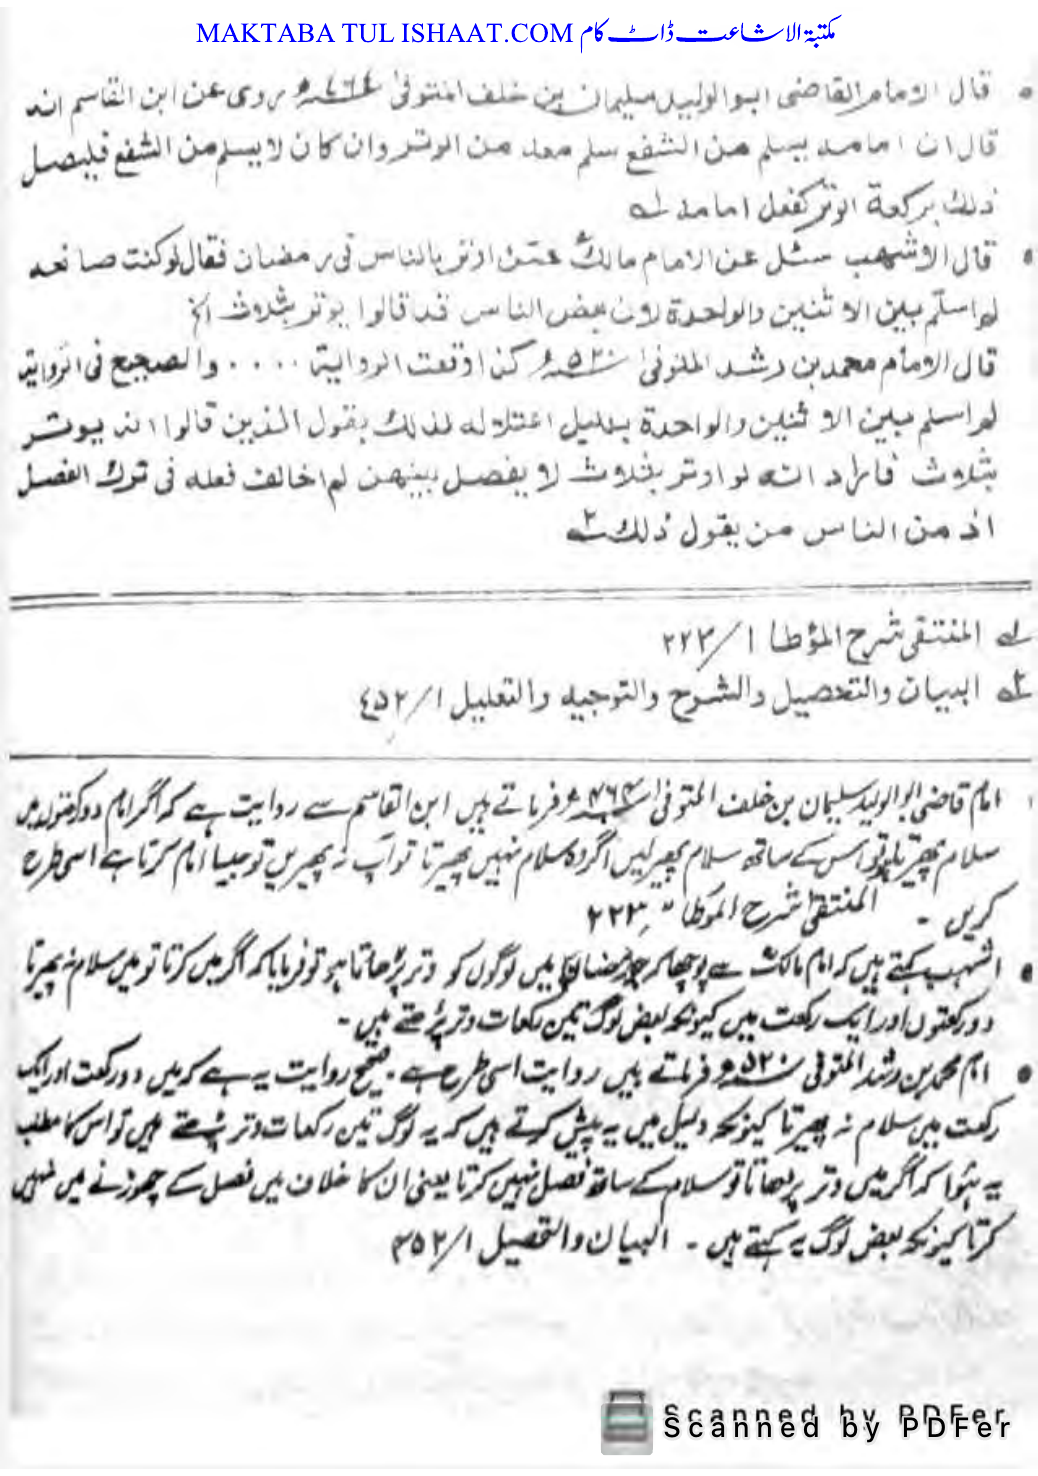 MAKTABA TUL ISHAAT.COM مکتبۃ الاشاعت ڈاٹ کام
قال الامام القاضی ابو الولید سلیمان بن خلف المتوفیٰ ٤٦٤ھ روی عن ابن القاسم انه
قال ان امامه یسلم من الشفع سلم معه من الوتر وان کان لا یسلم من الشفع فلیصل
ذلك برکعة الوتر کفعل امامه لے
قال الاشهب سئل عن الامام مالك عمن اوتر بالناس فی رمضان فقال لو کنت صانعه
لم اسلم بین الاثنین والواحدة لان بعض الناس قد قالوا یوتر بثلاث الخ
قال الامام محمد بن رشد المتوفیٰ ٥٢٠ھ کذا وقعت الروایة .... والصحیح فی الروایة
لم اسلم بین الاثنین والواحدة بدلیل اعتلاله لذلك بقول الذین قالوا انه یوتر
بثلاث فاراد انه لو اوتر بثلاث لا یفصل بینهن لم اخالف فعله فی ترك الفصل
اذ من الناس من یقول ذلك ۲ے
لے المنتقی شرح المؤطا ۱/۲۲۳
۲ے البیان والتحصیل والشرح والتوجیه والتعلیل ۱/٤٥٢
امام قاضی ابو الولید سلیمان بن خلف المتوفیٰ ۴۶۴ھ فرماتے ہیں ابن القاسم سے روایت ہے کہ اگر امام دو رکعتوں میں
سلام پھیرے تو اس کے ساتھ سلام پھیر لیں اگر وہ سلام نہیں پھیرتا تو آپ نہ پھیریں تو جیسا امام کرتا ہے اسی طرح
کریں ۔ المنتقیٰ شرح المؤطا ۲۲۳
اشہب کہتے ہیں کہ امام مالک سے پوچھا کہ جو رمضان میں لوگوں کو وتر پڑھاتا ہو تو فرمایا کہ اگر میں کرتا تو میں سلام نہ پھیرتا
دو رکعتوں اور ایک رکعت میں کیونکہ بعض لوگ تین رکعات وتر پڑھتے ہیں ۔
امام محمد بن رشد المتوفی ۵۲۰ھ فرماتے ہیں روایت اسی طرح ہے ۔ صحیح روایت یہ ہے کہ میں دو رکعت اور ایک
رکعت میں سلام نہ پھیرتا کیونکہ دلیل میں یہ پیش کرتے ہیں کہ یہ لوگ تین رکعات وتر پڑھتے ہیں تو اس کا مطلب
یہ ہوا کہ اگر میں وتر پڑھاتا تو سلام کے ساتھ فصل نہیں کرتا یعنی ان کا خلاف میں فصل کے چھوڑنے میں نہیں
کرتا کیونکہ بعض لوگ یہ کہتے ہیں ۔ البیان والتحصیل ۱/۴۵۲
Scanned by PDFer
Scanned by PDFer